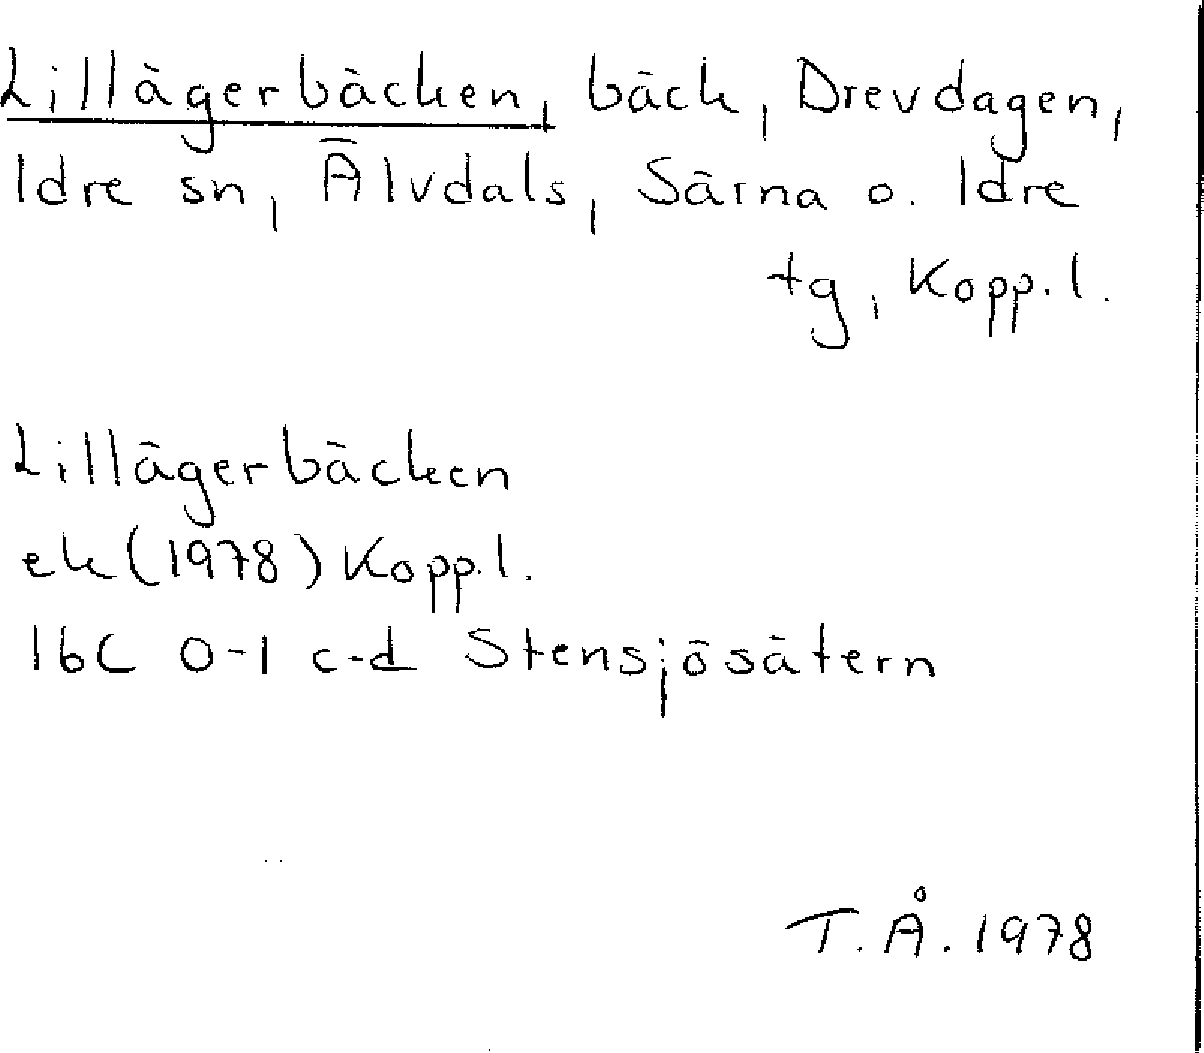 Lillägerbäcken, bäck, Drevdagen,
Idre sn, Älvdals, Särna o. Idre
tg, Kopp.l.
Lillägerbäcken
ek (1978) Kopp.l.
16C 0-1 c-d Stensjösätern
T.Å. 1978